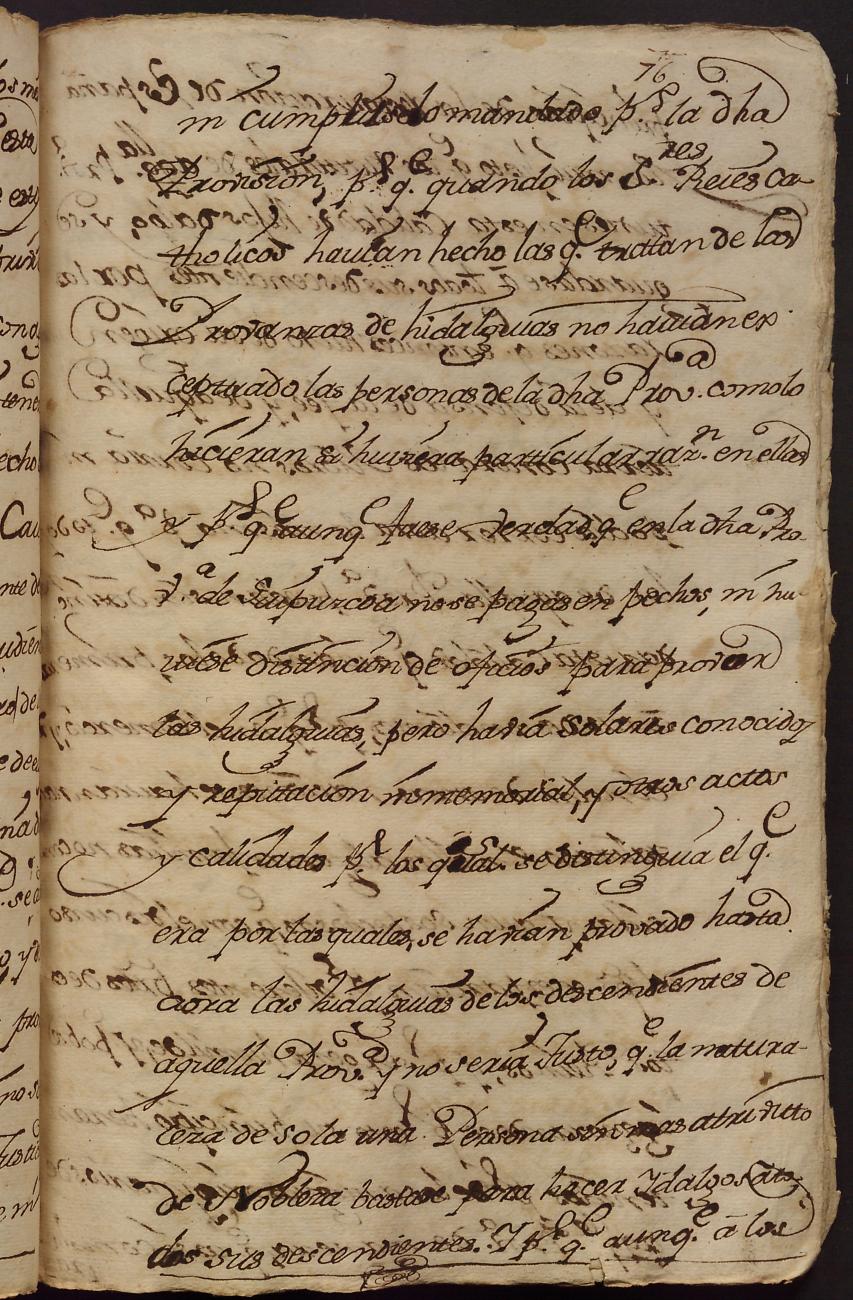 76
ni cumplirse lo mandado p.r la dha
Provision, p.r q.e quando los S.res Reies Ca-
tholicos havian hecho las q.e tratan de las
Provanzas de hidalguias no havian ex-
ceptuado las personas de la dha Prov.a como lo
hicieran si huviera particular raz.n en ellas
y p.r q.e aunq.e fuese verdad q.e en la dha Pro-
v.a de Guipuzcoa no se pagasen pechos, ni hu-
viese distincion de oficios para provar
las hidalguias, pero havia solares conocidos
y reputacion inmemorial, y otros actos
y calidades p.r los quales se distinguia el q.e
era por las quales, se havian provado hasta
aora las hidalguias de los descendientes de
aquella Prov.a y no seria Justo, q.e la natura-
leza de sola una Persona sin mas atributto
de Nobleza bastase para hacer Idalgos a to-
dos sus descendientes. Y p.r q.e aunq.e á los